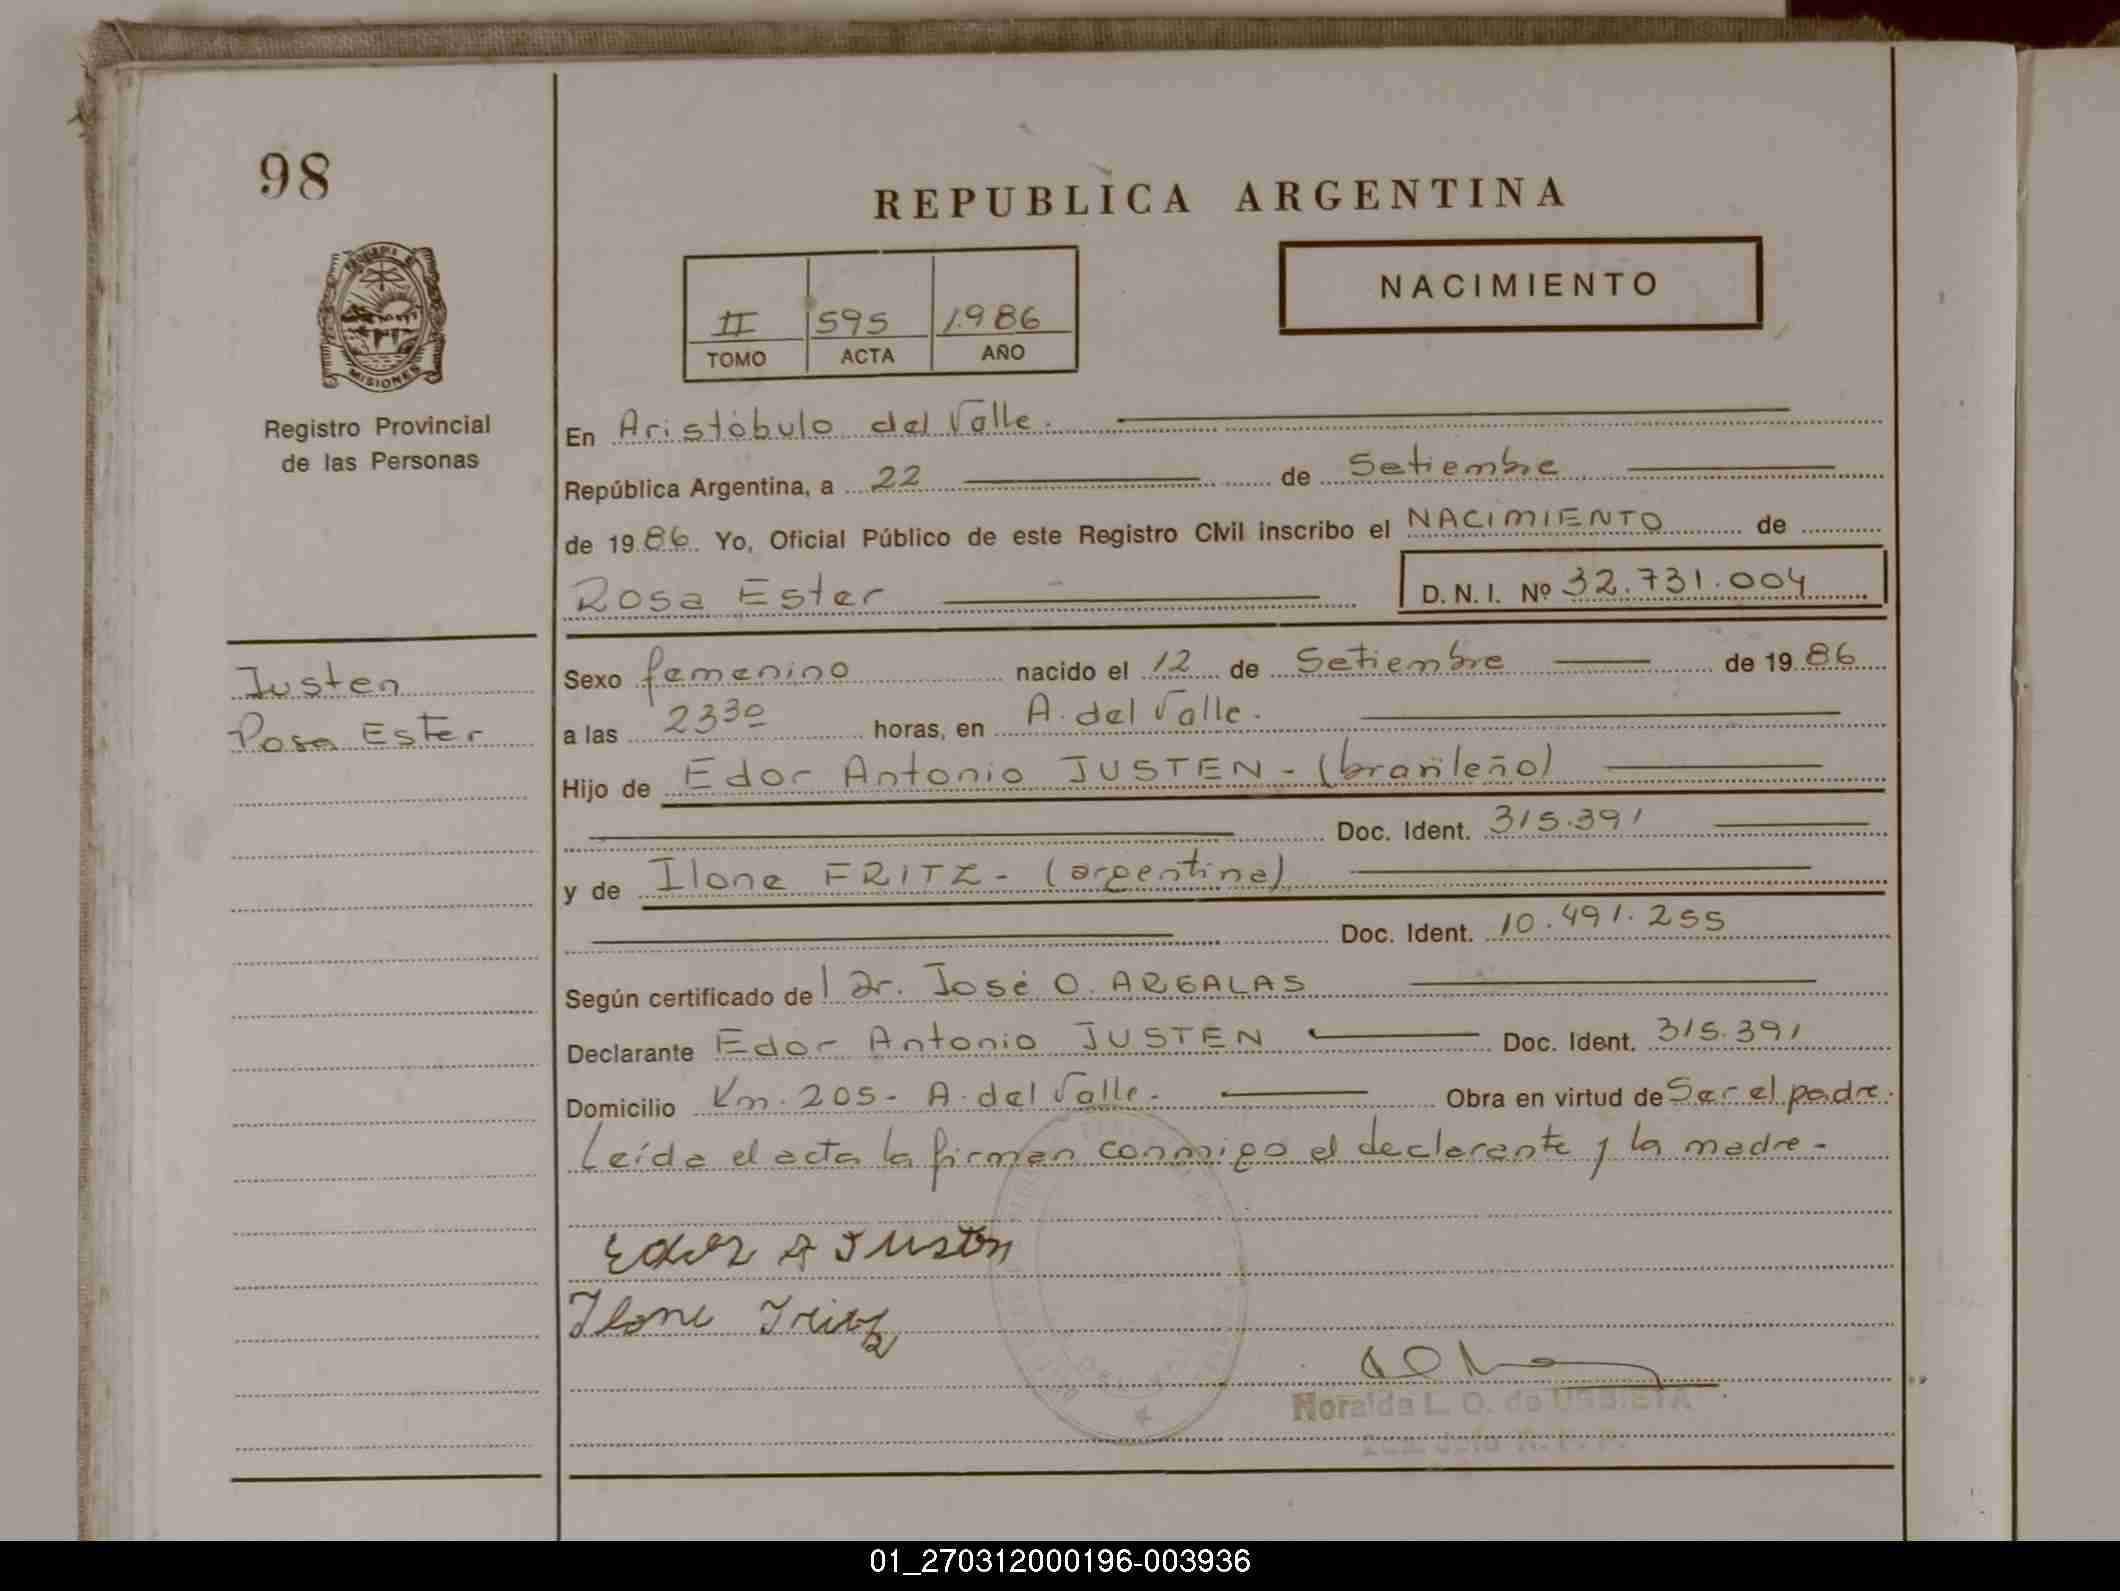 98
REPUBLICA ARGENTINA
NACIMIENTO
II 595 1.986
TOMO ACTA AÑO
MISIONES
Registro Provincial
de las Personas
En Aristóbulo del Valle.
República Argentina, a 22 de Setiembre
de 1986. Yo, Oficial Público de este Registro Civil inscribo el NACIMIENTO de
Rosa Ester D.N.I. Nº 32.731.004
Justen
Rosa Ester
Sexo femenino nacido el 12 de Setiembre de 1986
a las 23³⁰ horas, en A. del Valle.
Hijo de Edor Antonio JUSTEN - (brasileño)
Doc. Ident. 315.391
y de Ilona FRITZ - (argentina)
Doc. Ident. 10.491.255
Según certificado del Dr. José O. ARGALAS
Declarante Edor Antonio JUSTEN Doc. Ident. 315.391
Domicilio Km. 205 - A. del Valle. Obra en virtud de Ser el padre.
Leída el acta la firman conmigo el declarante y la madre.-
Edor A Justen
Ilona Fritz
Noraida L. O. de URBIETA
01_270312000196-003936